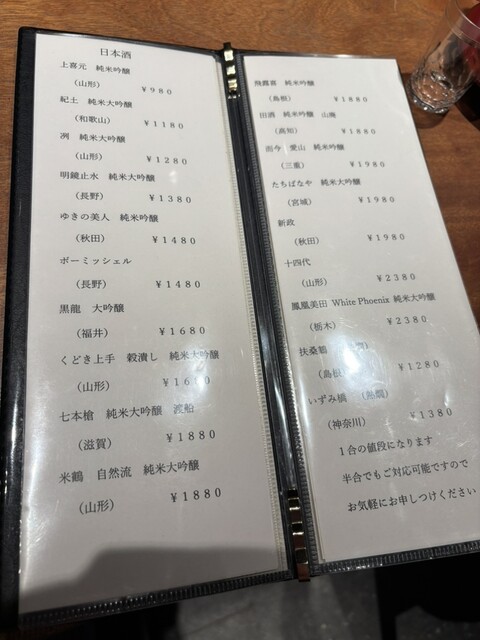 日本酒
上喜元 純米吟醸
(山形) ¥980
紀土 純米大吟醸
(和歌山) ¥1180
冽 純米大吟醸
(山形) ¥1280
明鏡止水 純米大吟醸
(長野) ¥1380
ゆきの美人 純米吟醸
(秋田) ¥1480
ボーミッシェル
(長野) ¥1480
黒龍 大吟醸
(福井) ¥1680
くどき上手 穀潰し 純米大吟醸
(山形) ¥1680
七本槍 純米大吟醸 渡船
(滋賀) ¥1880
米鶴 自然流 純米大吟醸
(山形) ¥1880
飛露喜 純米吟醸
(島根) ¥1880
田酒 純米吟醸 山廃
(高知) ¥1880
而今 愛山 純米吟醸
(三重) ¥1980
たちばなや 純米大吟醸
(宮城) ¥1980
新政
(秋田) ¥1980
十四代
(山形) ¥2380
鳳凰美田 White Phoenix 純米大吟醸
(栃木) ¥2380
扶桑鶴
(島根) ¥1280
いずみ橋 (熱燗)
(神奈川) ¥1380
1合の値段になります
半合でもご対応可能ですので
お気軽にお申しつけください